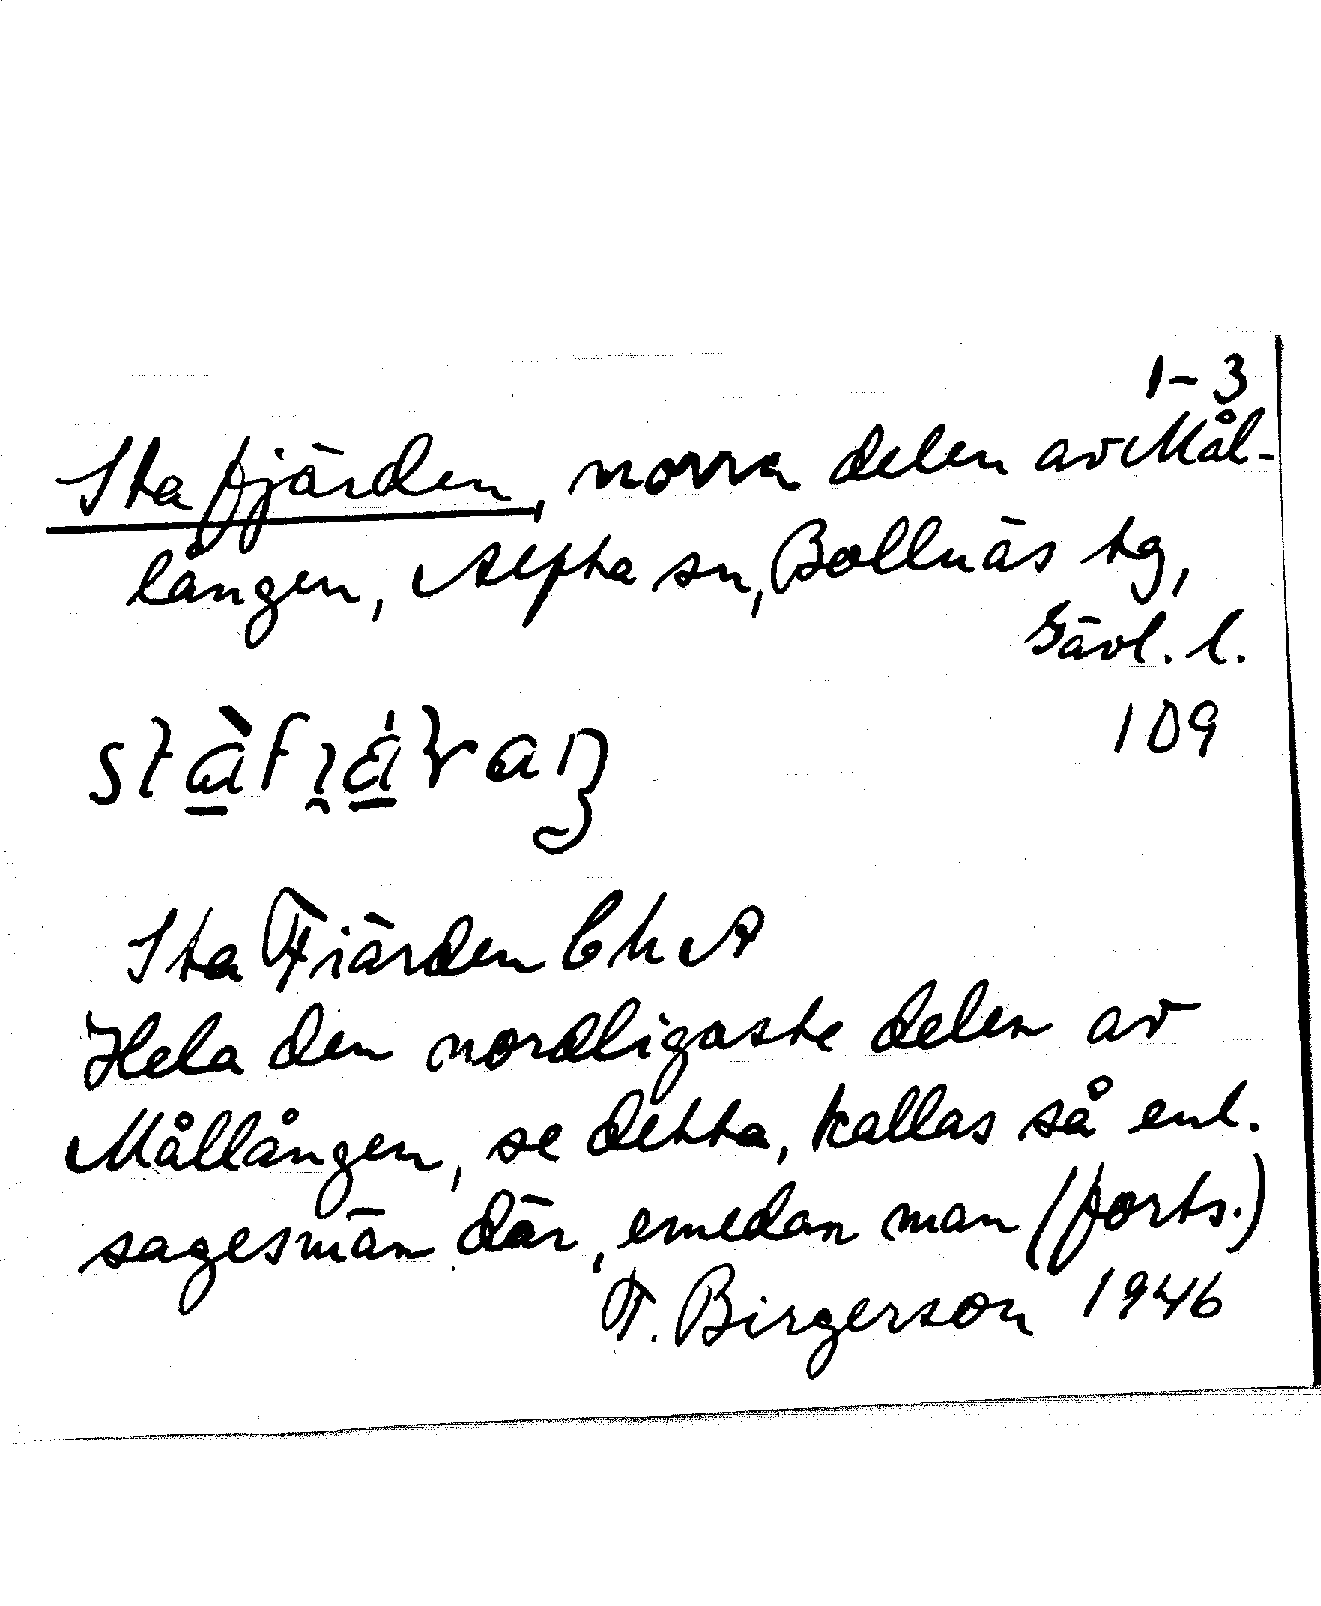 1-3
Sta fjärden, norra delen av Mål-
lången, Alfta sn, Bollnäs tg,
Gävl. l.
109
Sta Fjärden Ch A
Hela den nordligaste delen av
Mållången, se detta, kallas så enl.
sagesmän där, emedan man (forts.)
F. Birgerson 1946